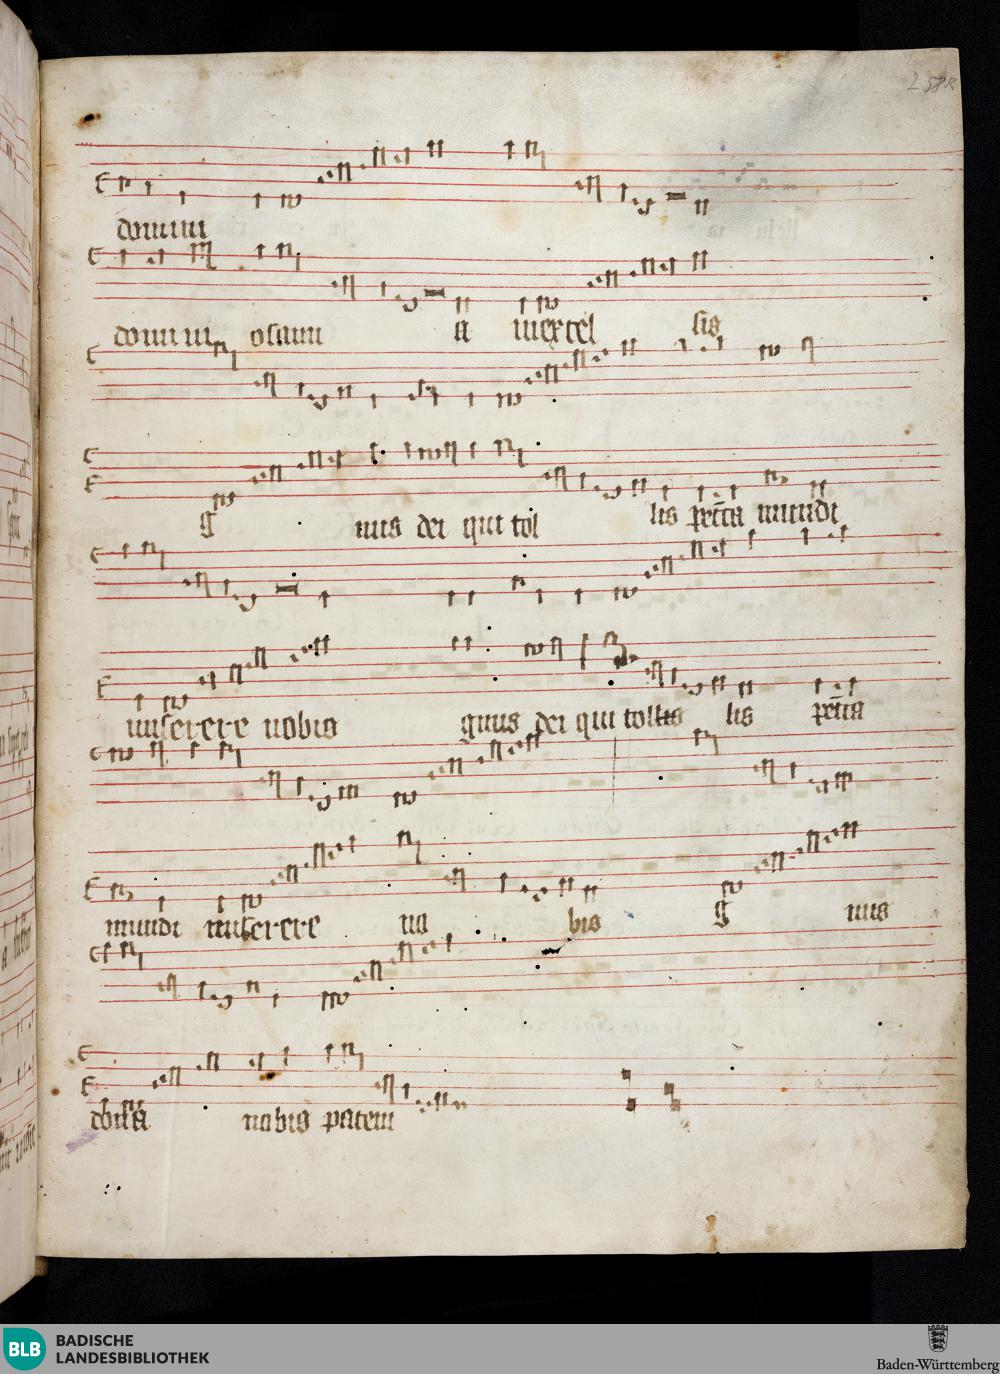 258r
domini
domini osann a inexcel sis
g nus dei qui tol lis pctā mundi
miserere nobis gnus dei qui tollis lis pctā
mundi miserere no bis g nus
nobis pacem
BLB
BADISCHE
LANDESBIBLIOTHEK
Baden-Württemberg